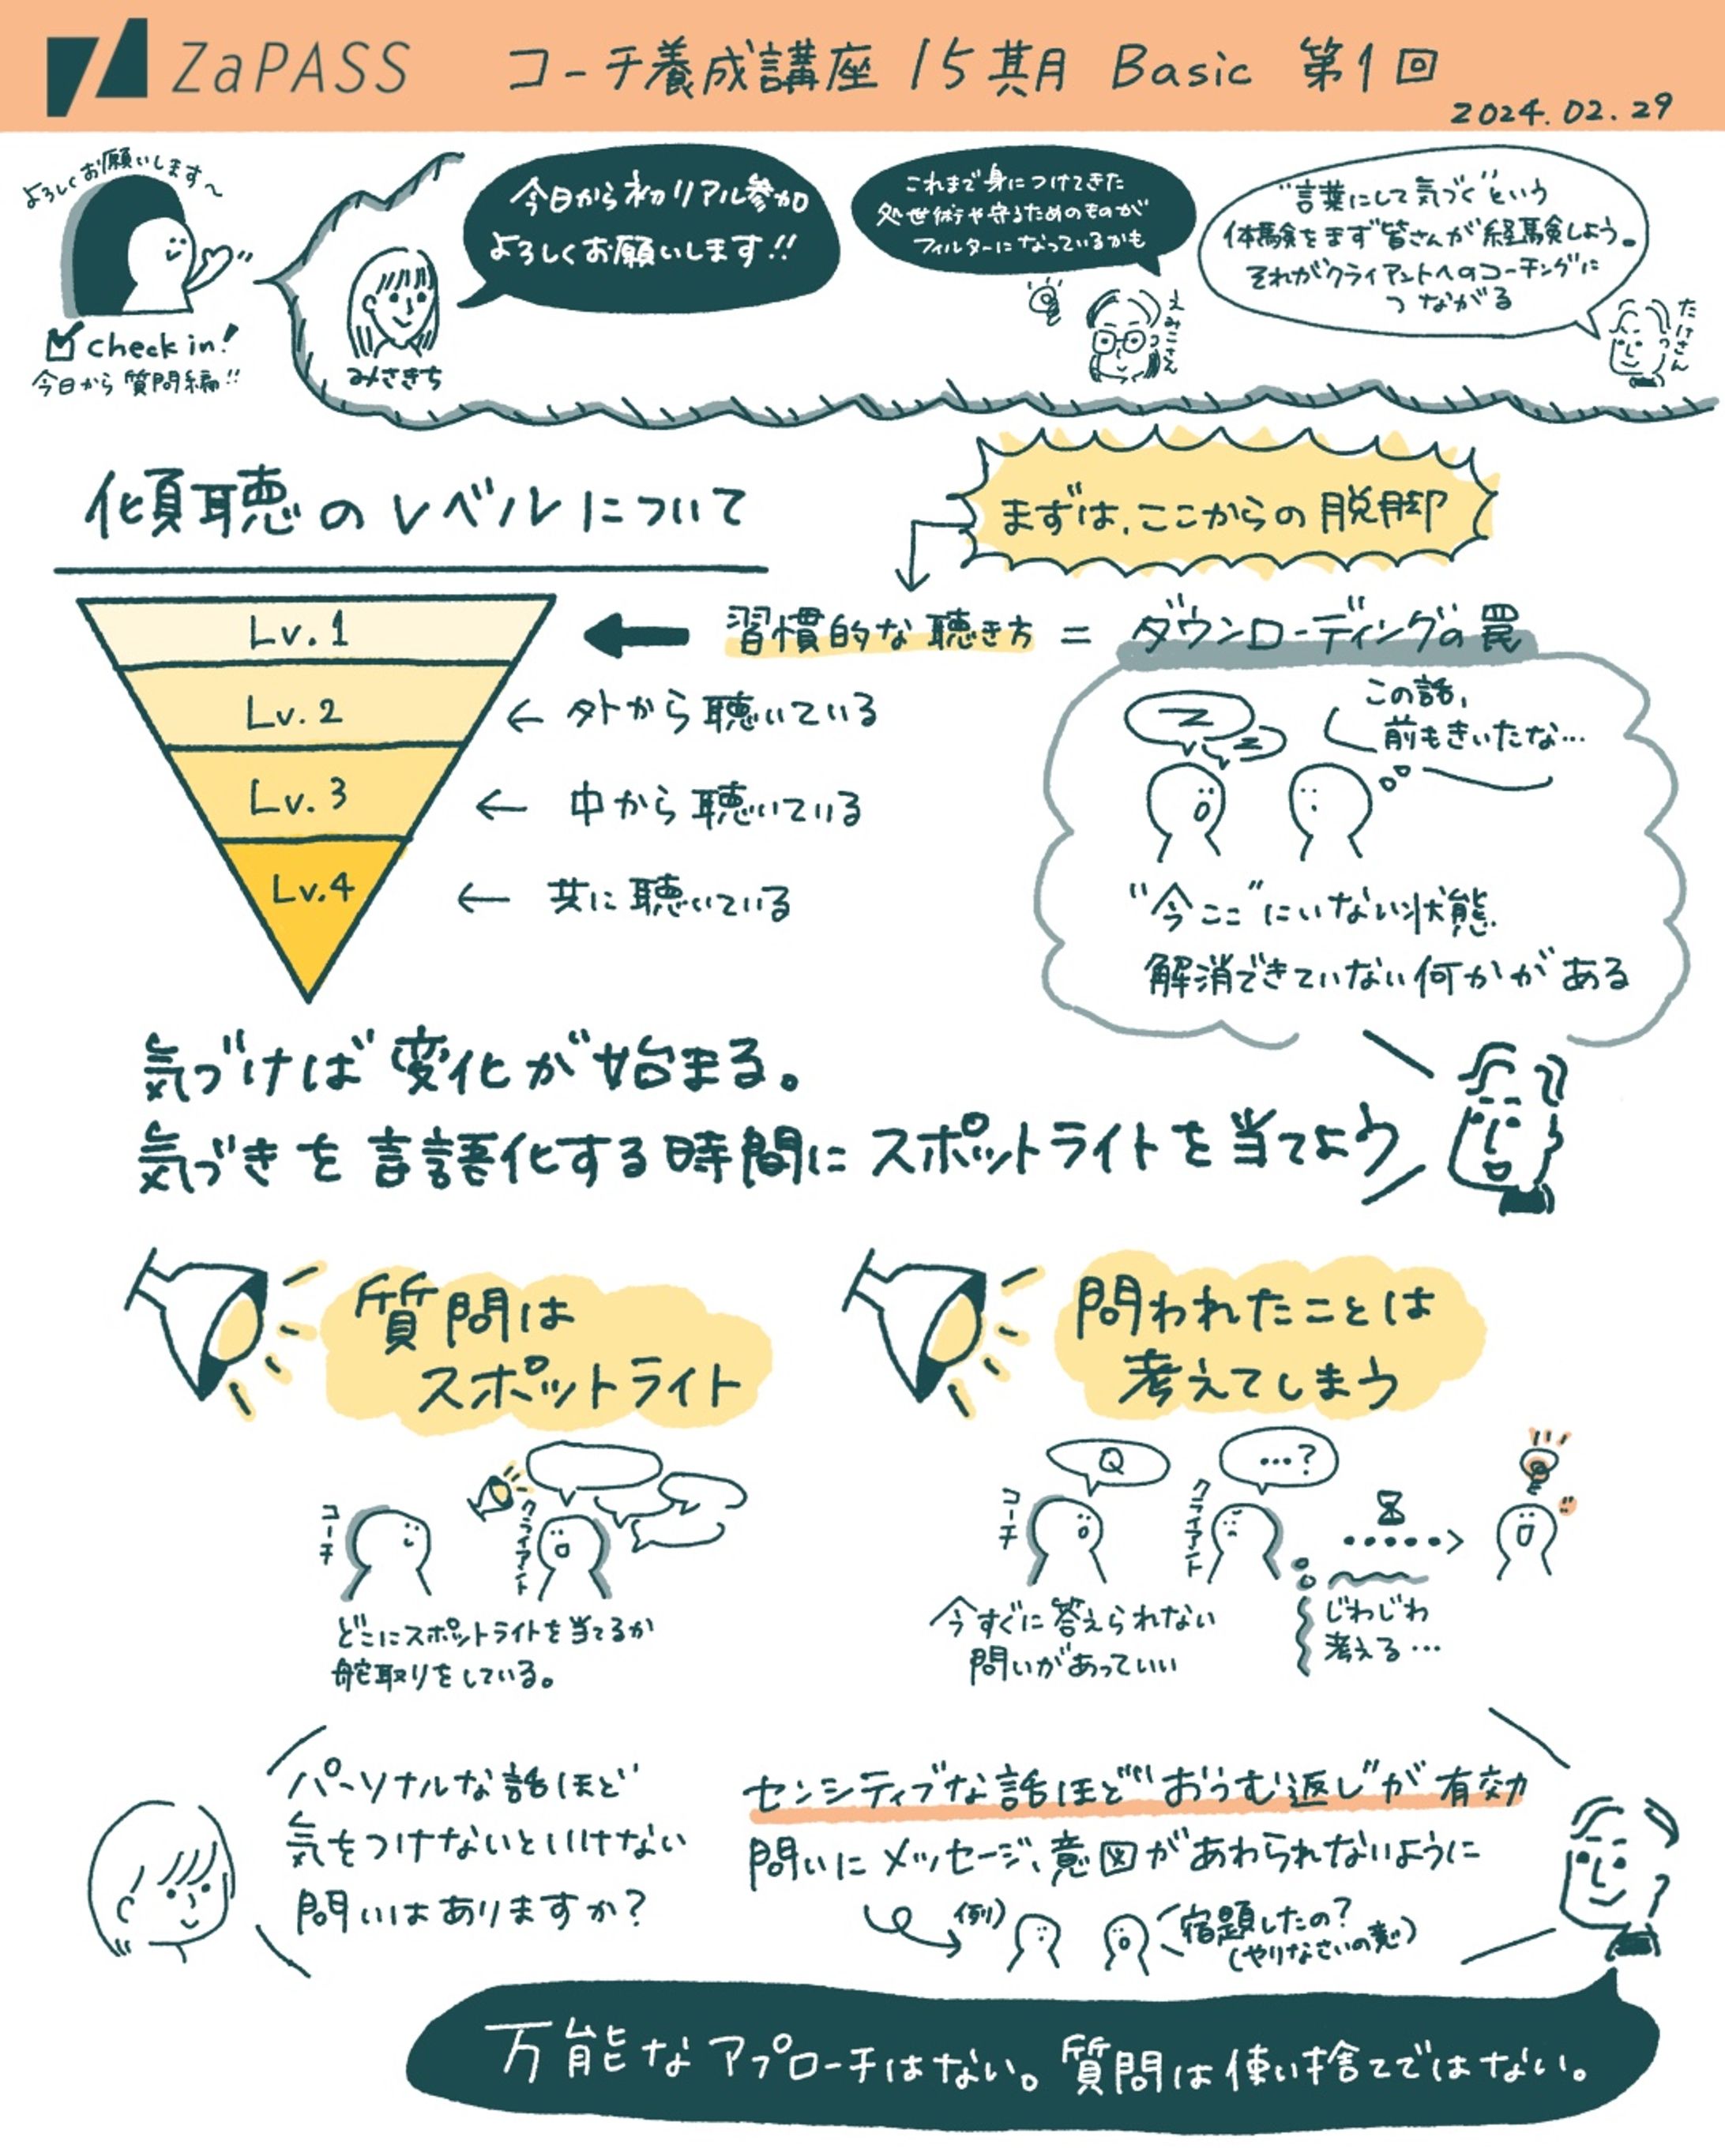 ZaPASS コーチ養成講座 15期 Basic 第1回
2024.02.29
よろしくお願いします〜
check in!
今日から質問編!!
今日から初リアル参加
よろしくお願いします!!
みさきち
これまで身につけてきた
処世術や守るためのものが
フィルターになっているかも
えみこさん
"言葉にして気づく"という
体験をまず皆さんが経験しよう。
それがクライアントへのコーチングに
つながる
たけさん
傾聴のレベルについて
まずは、ここからの脱却
Lv.1
習慣的な聴き方 = ダウンローディングの罠
Lv.2
外から聴いている
Lv.3
中から聴いている
Lv.4
共に聴いている
Z
Z
この話、
前もきいたな…
"今ここ"にいない状態
解消できていない何かがある
気づけば変化が始まる。
気づきを言語化する時間にスポットライトを当てよう
質問は
スポットライト
コーチ
クライアント
どこにスポットライトを当てるか
舵取りをしている。
問われたことは
考えてしまう
コーチ
Q
クライアント
…?
今すぐに答えられない
問いがあっていい
じわじわ
考える…
パーソナルな話ほど
気をつけないといけない
問いはありますか?
センシティブな話ほど"おうむ返し"が有効
問いにメッセージ、意図があわられないように
例)
宿題したの?
(やりなさいの意)
万能なアプローチはない。質問は使い捨てではない。